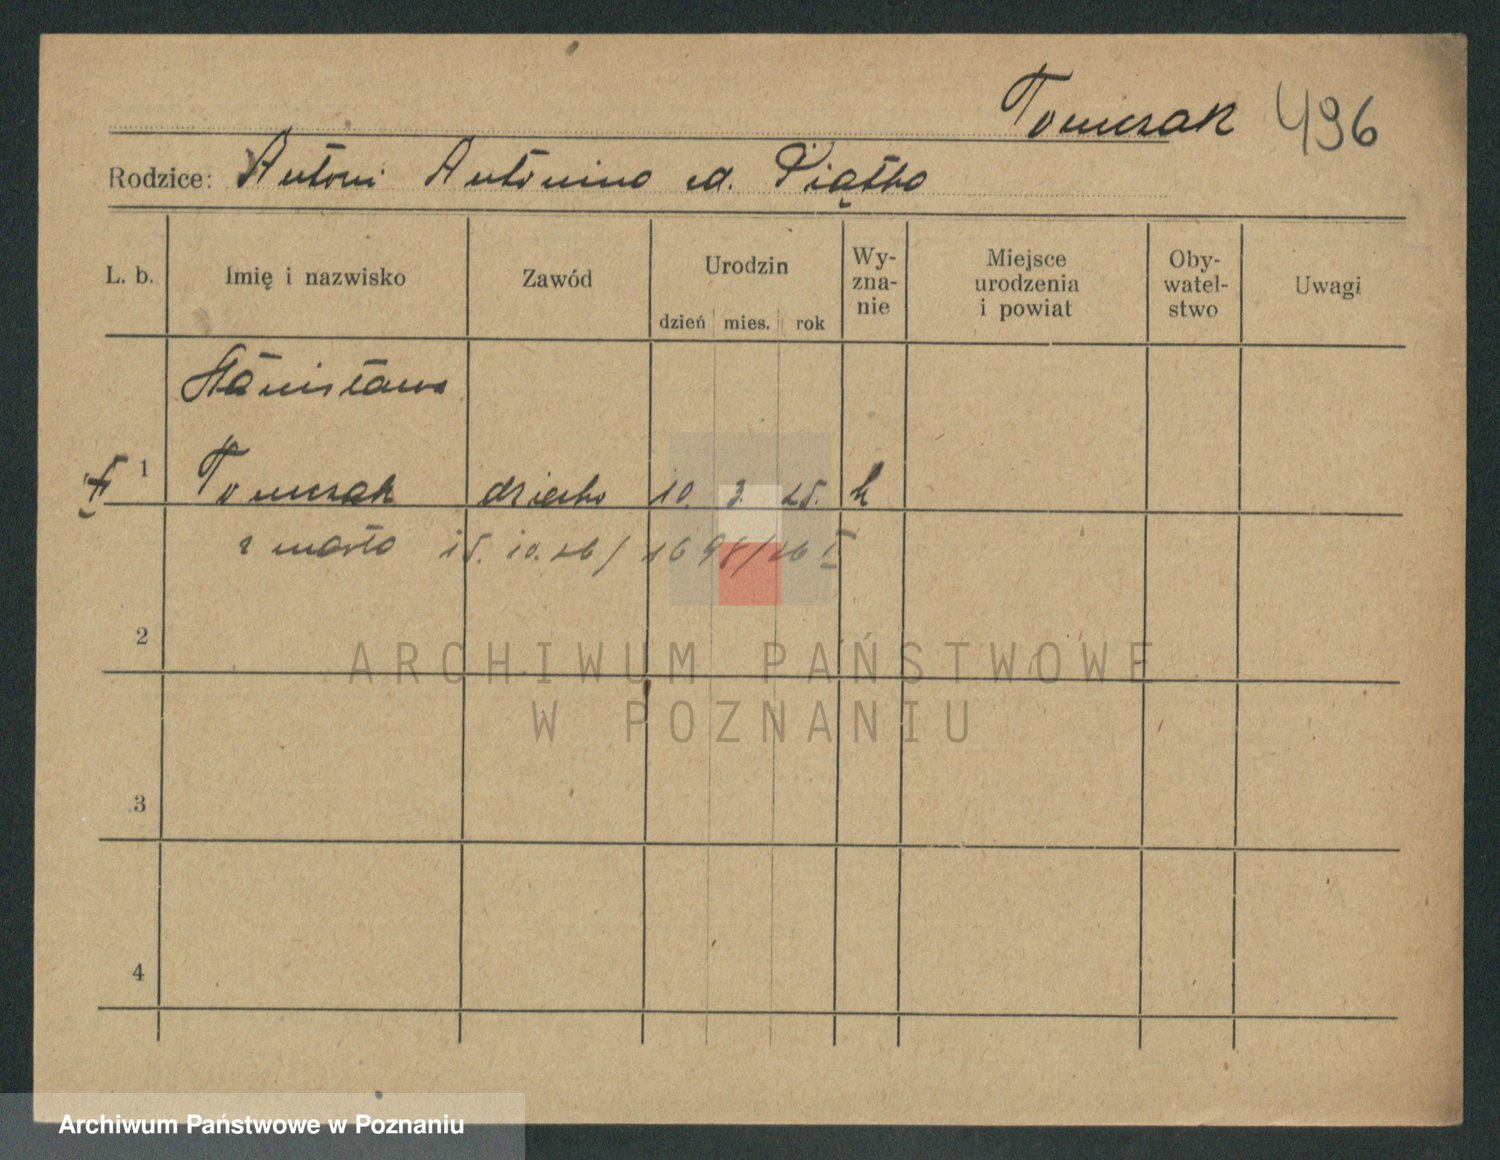 Tomczak 496
Rodzice: Antoni Antonina ud. Piątka
L. b. Imię i nazwisko Zawód Urodzin dzień mies. rok Wy-zna-nie Miejsce urodzenia i powiat Oby-watel-stwo Uwagi
Stanisława
1 Tomczak dziecko 10. 3. 25. k
zmarła 15. 10. 26 / 1698/26 I
2
ARCHIWUM PAŃSTWOWE
W POZNANIU
3
4
Archiwum Państwowe w Poznaniu